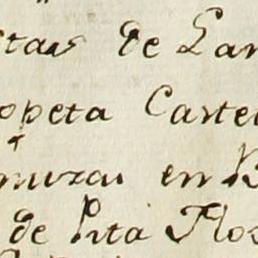 stas de Lan
opeta Carte
muzas en B
de Pita Flos